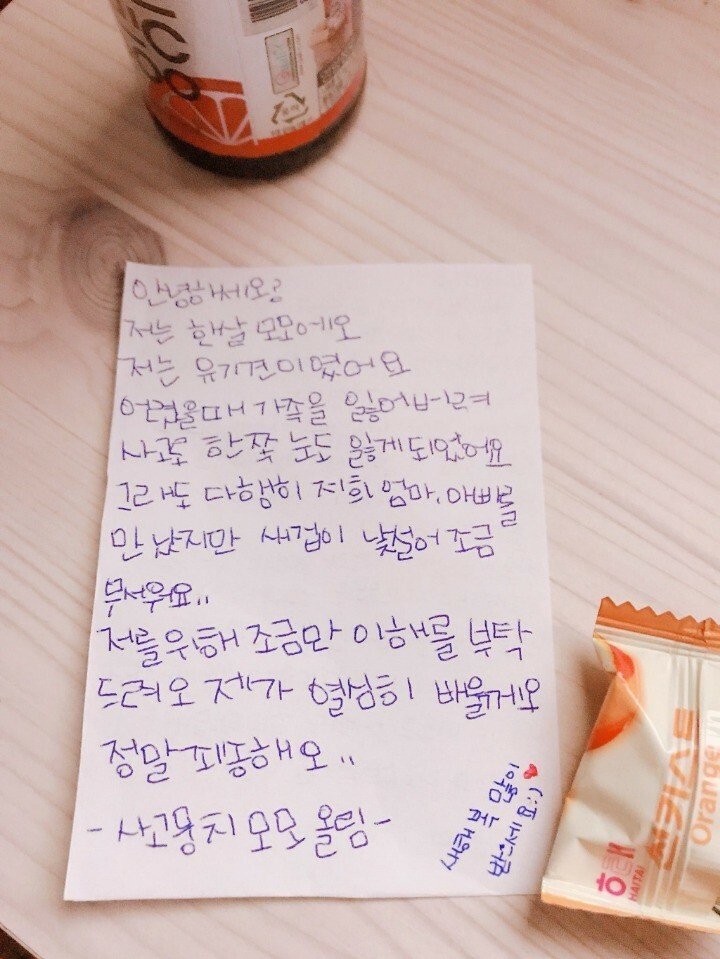 안녕하세요?
저는 한살 모모에오
저는 유기견이였어요
어렸을때 가족을 잃어버리려
사고로 한쪽 눈도 잃게되었어요
그래도 다행히 저희 엄마, 아빠를
만났지만 새집이 낯설어 조금
무서워요..
저를위해 조금만 이해를 부탁
드려오 제가 열심히 배울게오
정말 죄송해오..
- 사고뭉치 모모 올림 -
해태
HAITAI
썬키스트
Orange